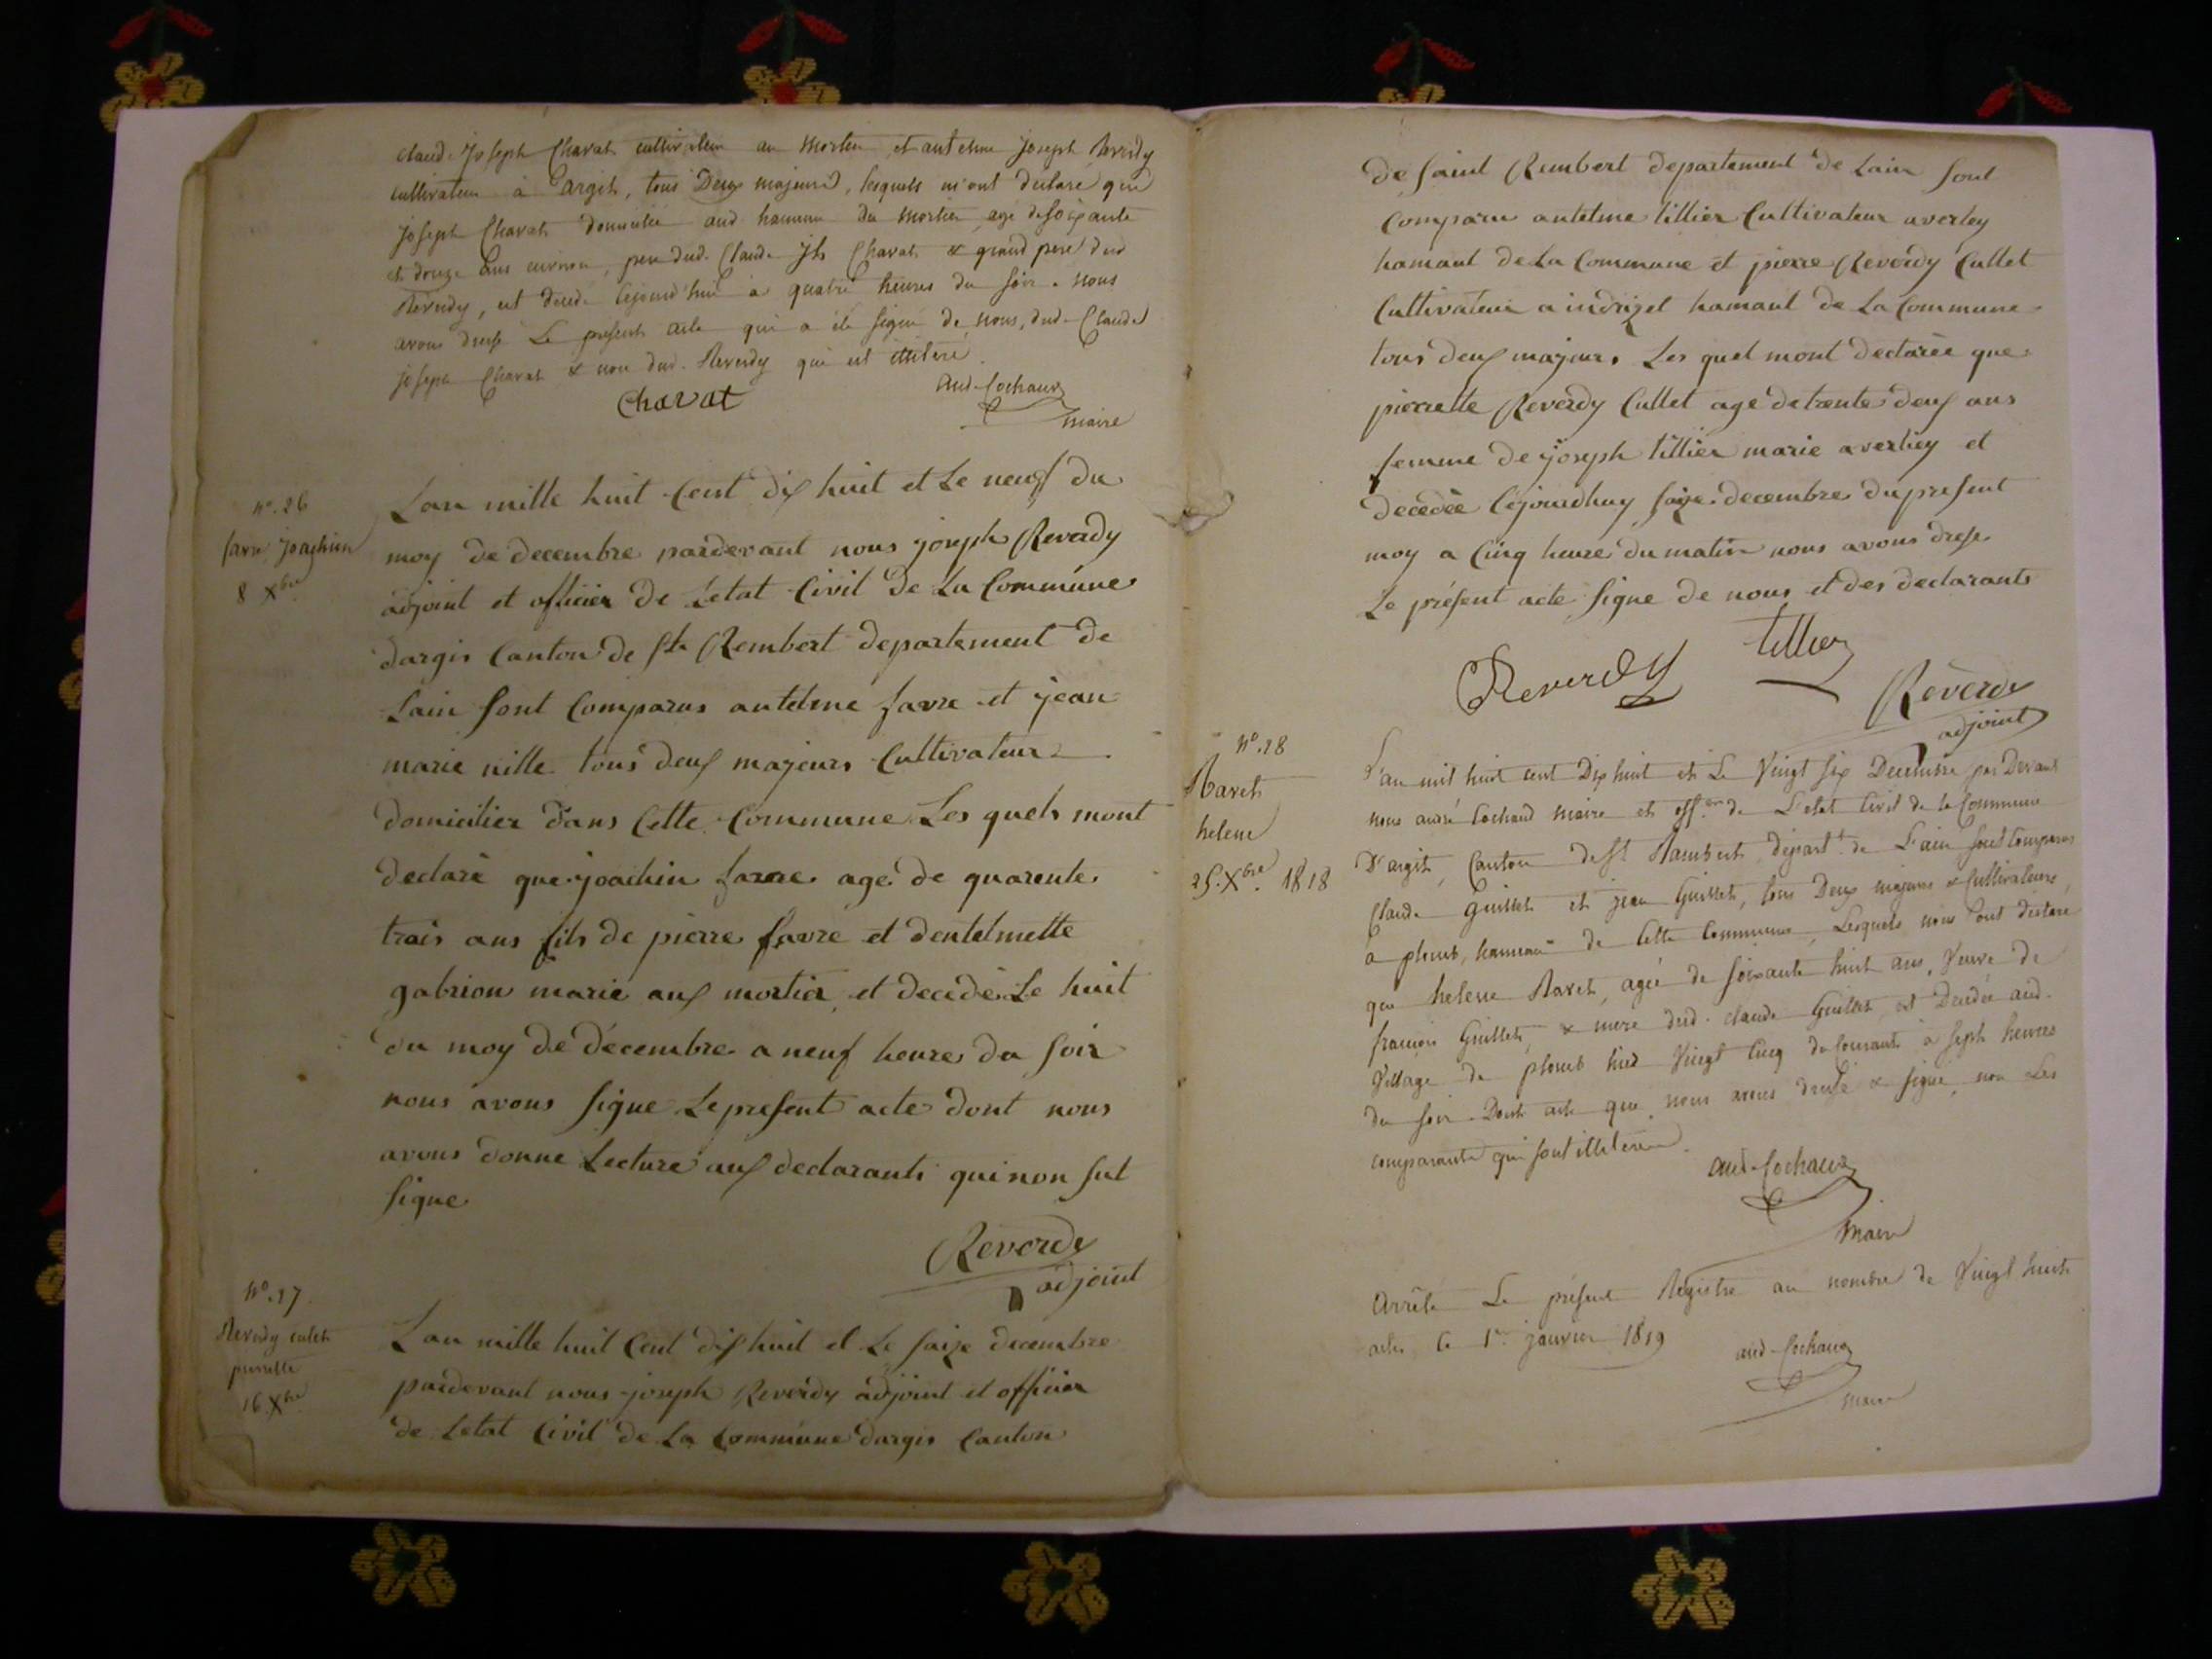 Claude Joseph Charat cultivateur au Mortier, et antelme joseph Reverdy
cultivateur à argit, tous Deux majeurs, lesquels m'ont déclaré que
joseph Charat domicilié aud. hameau du Mortier agé de soixante
et douze ans environ, pere dud. Claude Jh Charat & grand pere dud
Reverdy, est décédé cejourd'hui à quatre heures du soir. nous
avons dressé Le present acte qui a été signé de nous, dud. Claude
joseph Charat & non dud. Reverdy qui est illiteré.
Charat
And. Cochaud
maire
n°. 26
favre joachim
8 Xbre
Lan mille huit Cent dix huit et Le neuf du
moy de decembre pardevant nous joseph Reverdy
adjoint et officier de Letat Civil de La Commune
dargis Canton de St Rembert departement de
Lain sont Comparus antelme favre et jean
marie nille tous deux majeurs Cultivateur
domicilier dans Cette Commune Les quels mont
declaré que joachin favre agé de quarente
trois ans fils de pierre favre et dentelmette
gabrion marié aux mortier et decedé Le huit
du moy de décembre a neuf heure du soir
nous avons signe Le present acte dont nous
avons donne Lecture aux declarants qui non sut
signe
Reverdy
adjoint
n°. 27
Reverdy culet
pierrette
16 Xbre
Lan mille huit Cent dix huit et Le saize decembre
pardevant nous joseph Reverdy adjoint et officier
de Letat Civil de La Commune dargis Canton
de saint Rembert departement de Lain sont
Comparu antelme tillier Cultivateur averley
hamaut de La Commune et pierre Reverdy Cullet
Cultivateur a indrizet hamaut de La Commune
tous deux majeurs Les quel mont declarée que
pierrette Reverdy Cullet age de trente deux ans
femme de joseph tillier marie averliey et
decedée Cejourdhuy saize decembre du present
moy a Cinq heure du matin nous avons dresse
Le présent acte signe de nous et des declarants
Reverdy
tillier
Reverdy
adjoint
n°. 28
Ravet
helene
25. Xbre. 1818
L'an mil huit cent Dix huit et Le Vingt six Decembre par Devant
nous andré Cochaud maire et off.er de L'etat Civil de la Commune
D'argit, Canton de St Rambert, départ.t de L'ain sont Comparus
Claude Guillet et jean Guillet, tous Deux majeurs & Cultivateurs
à plomb, hameau de Cette Commune, Lesquels nous ont declaré
que helene Ravet, agée de soixante huit ans, Veuve de
françois Guillet, & mere dud. claude Guillet, est Decedée aud.
Village de plomb hier Vingt Cinq du Courant à sept heures
du soir. Dont acte que nous avons dressé & signé, non Les
comparants qui sont illiterés.
And. Cochaud
Maire
Arrêté Le présent Registre au nombre de Vingt huit
actes le 1er janvier 1819
And. Cochaud
Maire